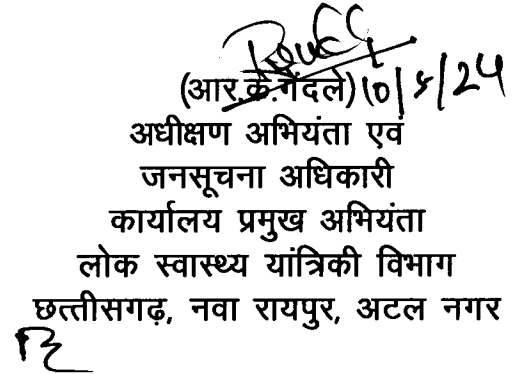 (आर.के.गेंदले) 10/5/24
अधीक्षण अभियंता एवं
जनसूचना अधिकारी
कार्यालय प्रमुख अभियंता
लोक स्वास्थ्य यांत्रिकी विभाग
छत्तीसगढ़, नवा रायपुर, अटल नगर